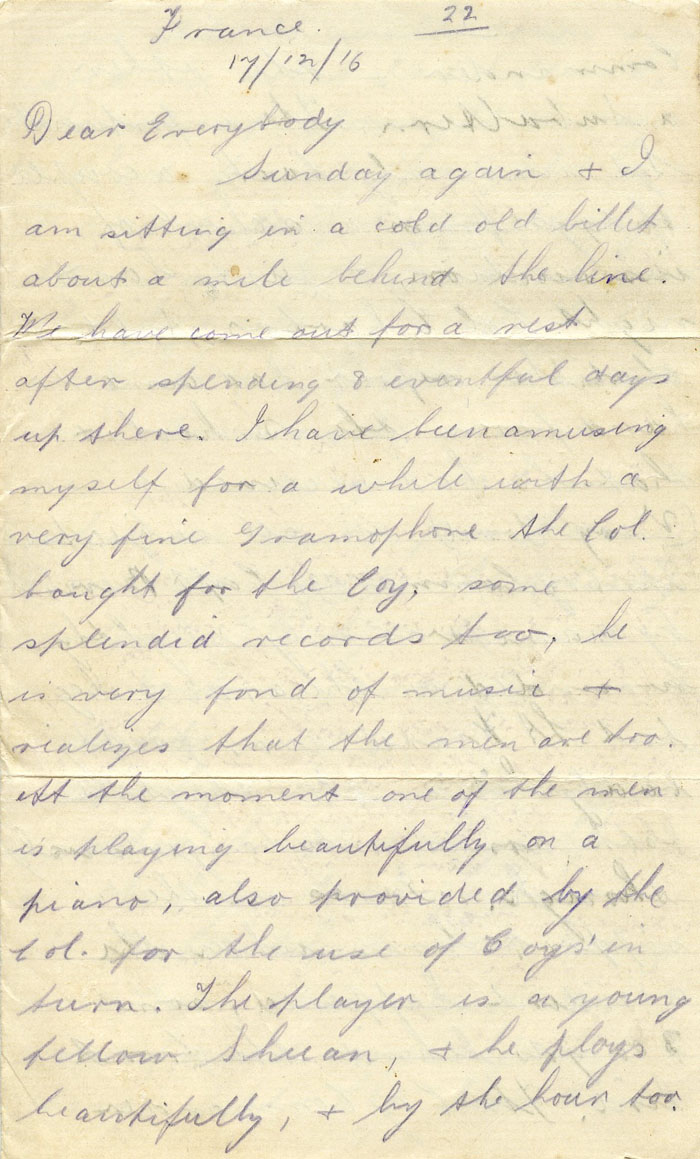 France. 22
17/12/16
Dear Everybody
Sunday again & I
am sitting in a cold old billet
about a mile behind the line.
We have come out for a rest
after spending 8 eventful days
up there. I have been amusing
myself for a while with a
very fine Gramophone the Col.
bought for the Coy, some
splendid records too, he
is very fond of music &
realizes that the men are too.
At the moment one of the men
is playing beautifully on a
piano, also provided by the
Col. for the use of Coys' in
turn. The player is a young
fellow Sheean, & he plays
beautifully, & by the hour too.